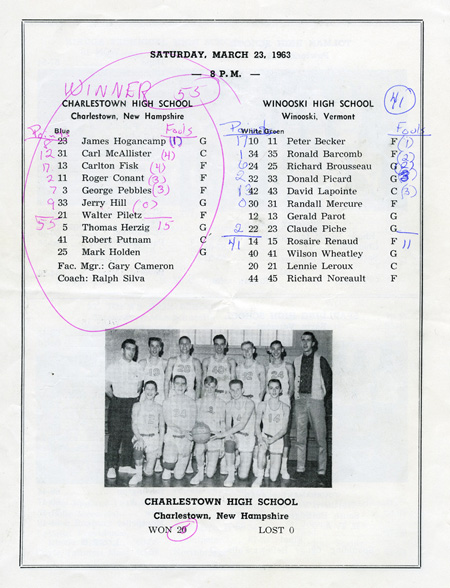 SATURDAY, MARCH 23, 1963
— 8 P.M. —
WINNER 55
CHARLESTOWN HIGH SCHOOL
Charlestown, New Hampshire
Fouls
Blue
23 James Hogancamp (1) G
12 31 Carl McAllister (4) C
13 Carlton Fisk (4) F
2 11 Roger Conant (3) F
7 3 George Pebbles (3) F
9 33 Jerry Hill (0) G
21 Walter Piletz F
55 5 Thomas Herzig 15 G
41 Robert Putnam C
25 Mark Holden G
Fac. Mgr.: Gary Cameron
Coach: Ralph Silva
41
WINOOSKI HIGH SCHOOL
Winooski, Vermont
Fouls
White Green
10 11 Peter Becker F (1)
34 35 Ronald Barcomb F
24 25 Richard Brousseau G
32 33 Donald Picard G
42 43 David Lapointe C (3)
0 30 31 Randall Mercure F
12 13 Gerald Parot G
2 22 23 Claude Piche G
41 14 15 Rosaire Renaud F 11
40 41 Wilson Wheatley G
20 21 Lennie Leroux C
44 45 Richard Noreault F
CHARLESTOWN HIGH SCHOOL
Charlestown, New Hampshire
WON 20 LOST 0